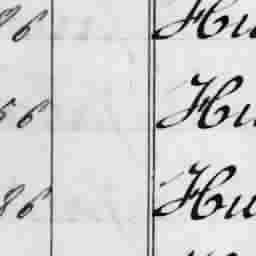 86 Hu
56 Hu
86 Hu